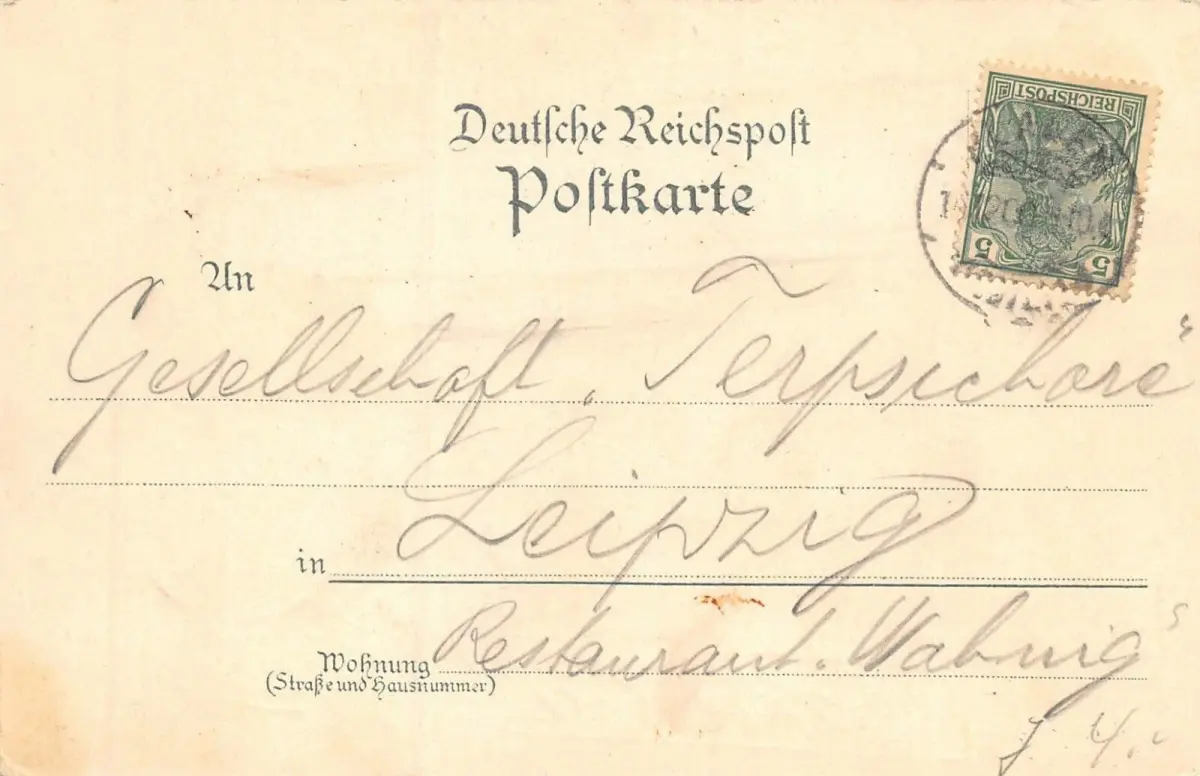 Deutsche Reichspost
Postkarte
REICHSPOST
5 5
An
Gesellschaft „Terpsichore“
in Leipzig
Wohnung Restaurant
(Straße und Hausnummer)